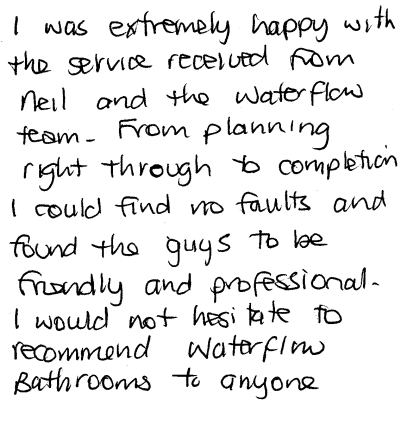 I was extremely happy with
the service received from
Neil and the Waterflow
team. From planning
right through to completion
I could find no faults and
found the guys to be
friendly and professional.
I would not hesitate to
recommend Waterflow
Bathrooms to anyone